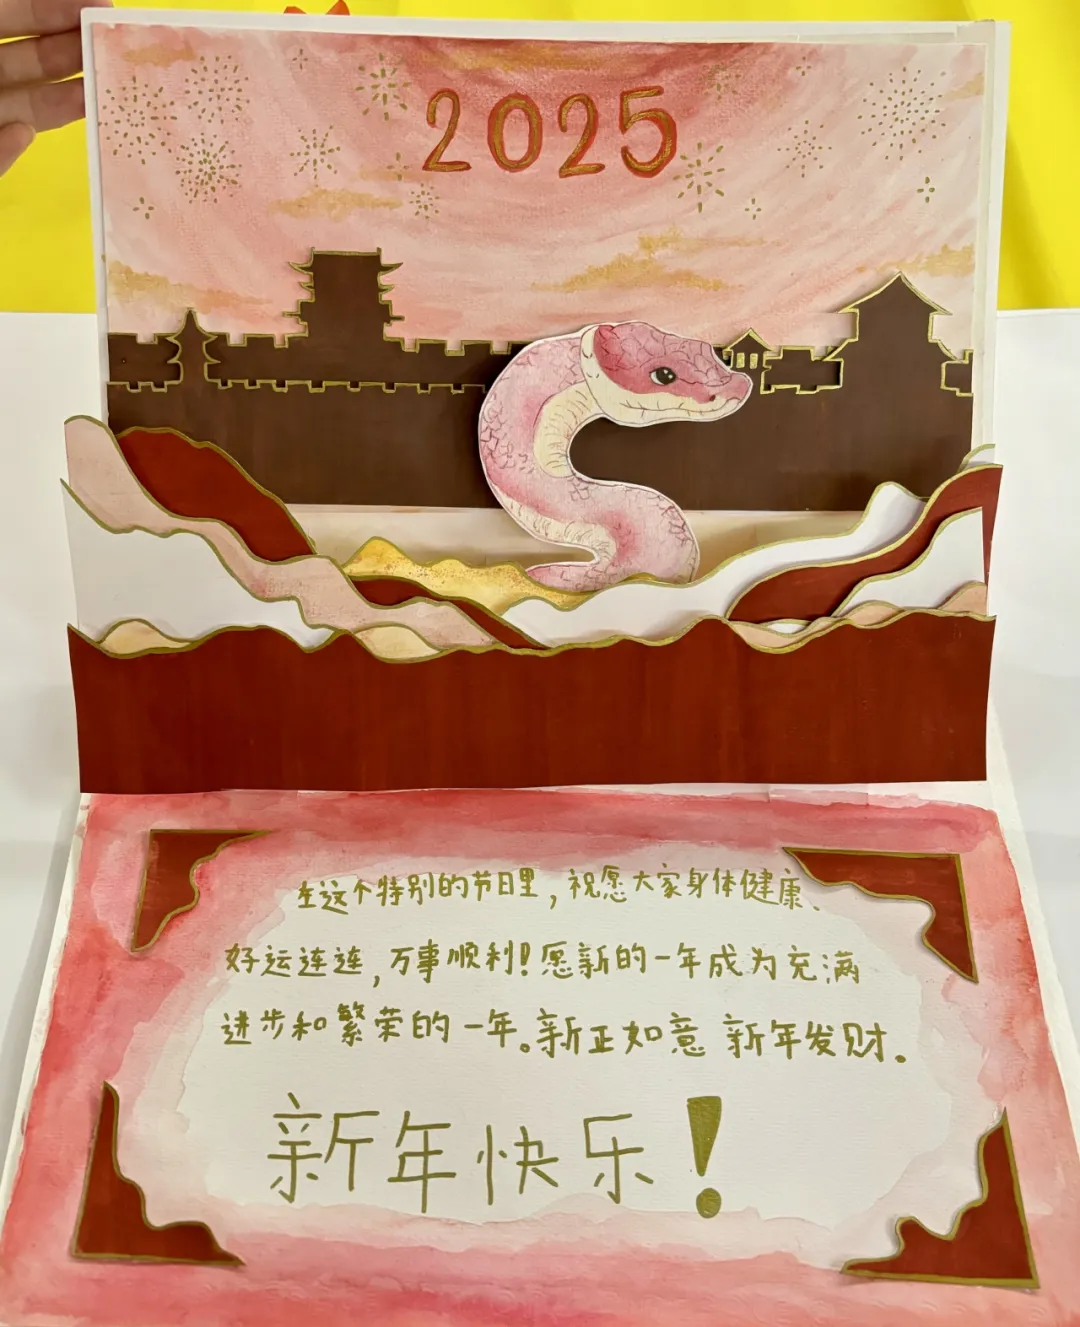 2025
在这个特别的节日里,祝愿大家身体健康、
好运连连,万事顺利!愿新的一年成为充满
进步和繁荣的一年。新正如意 新年发财.
新年快乐!